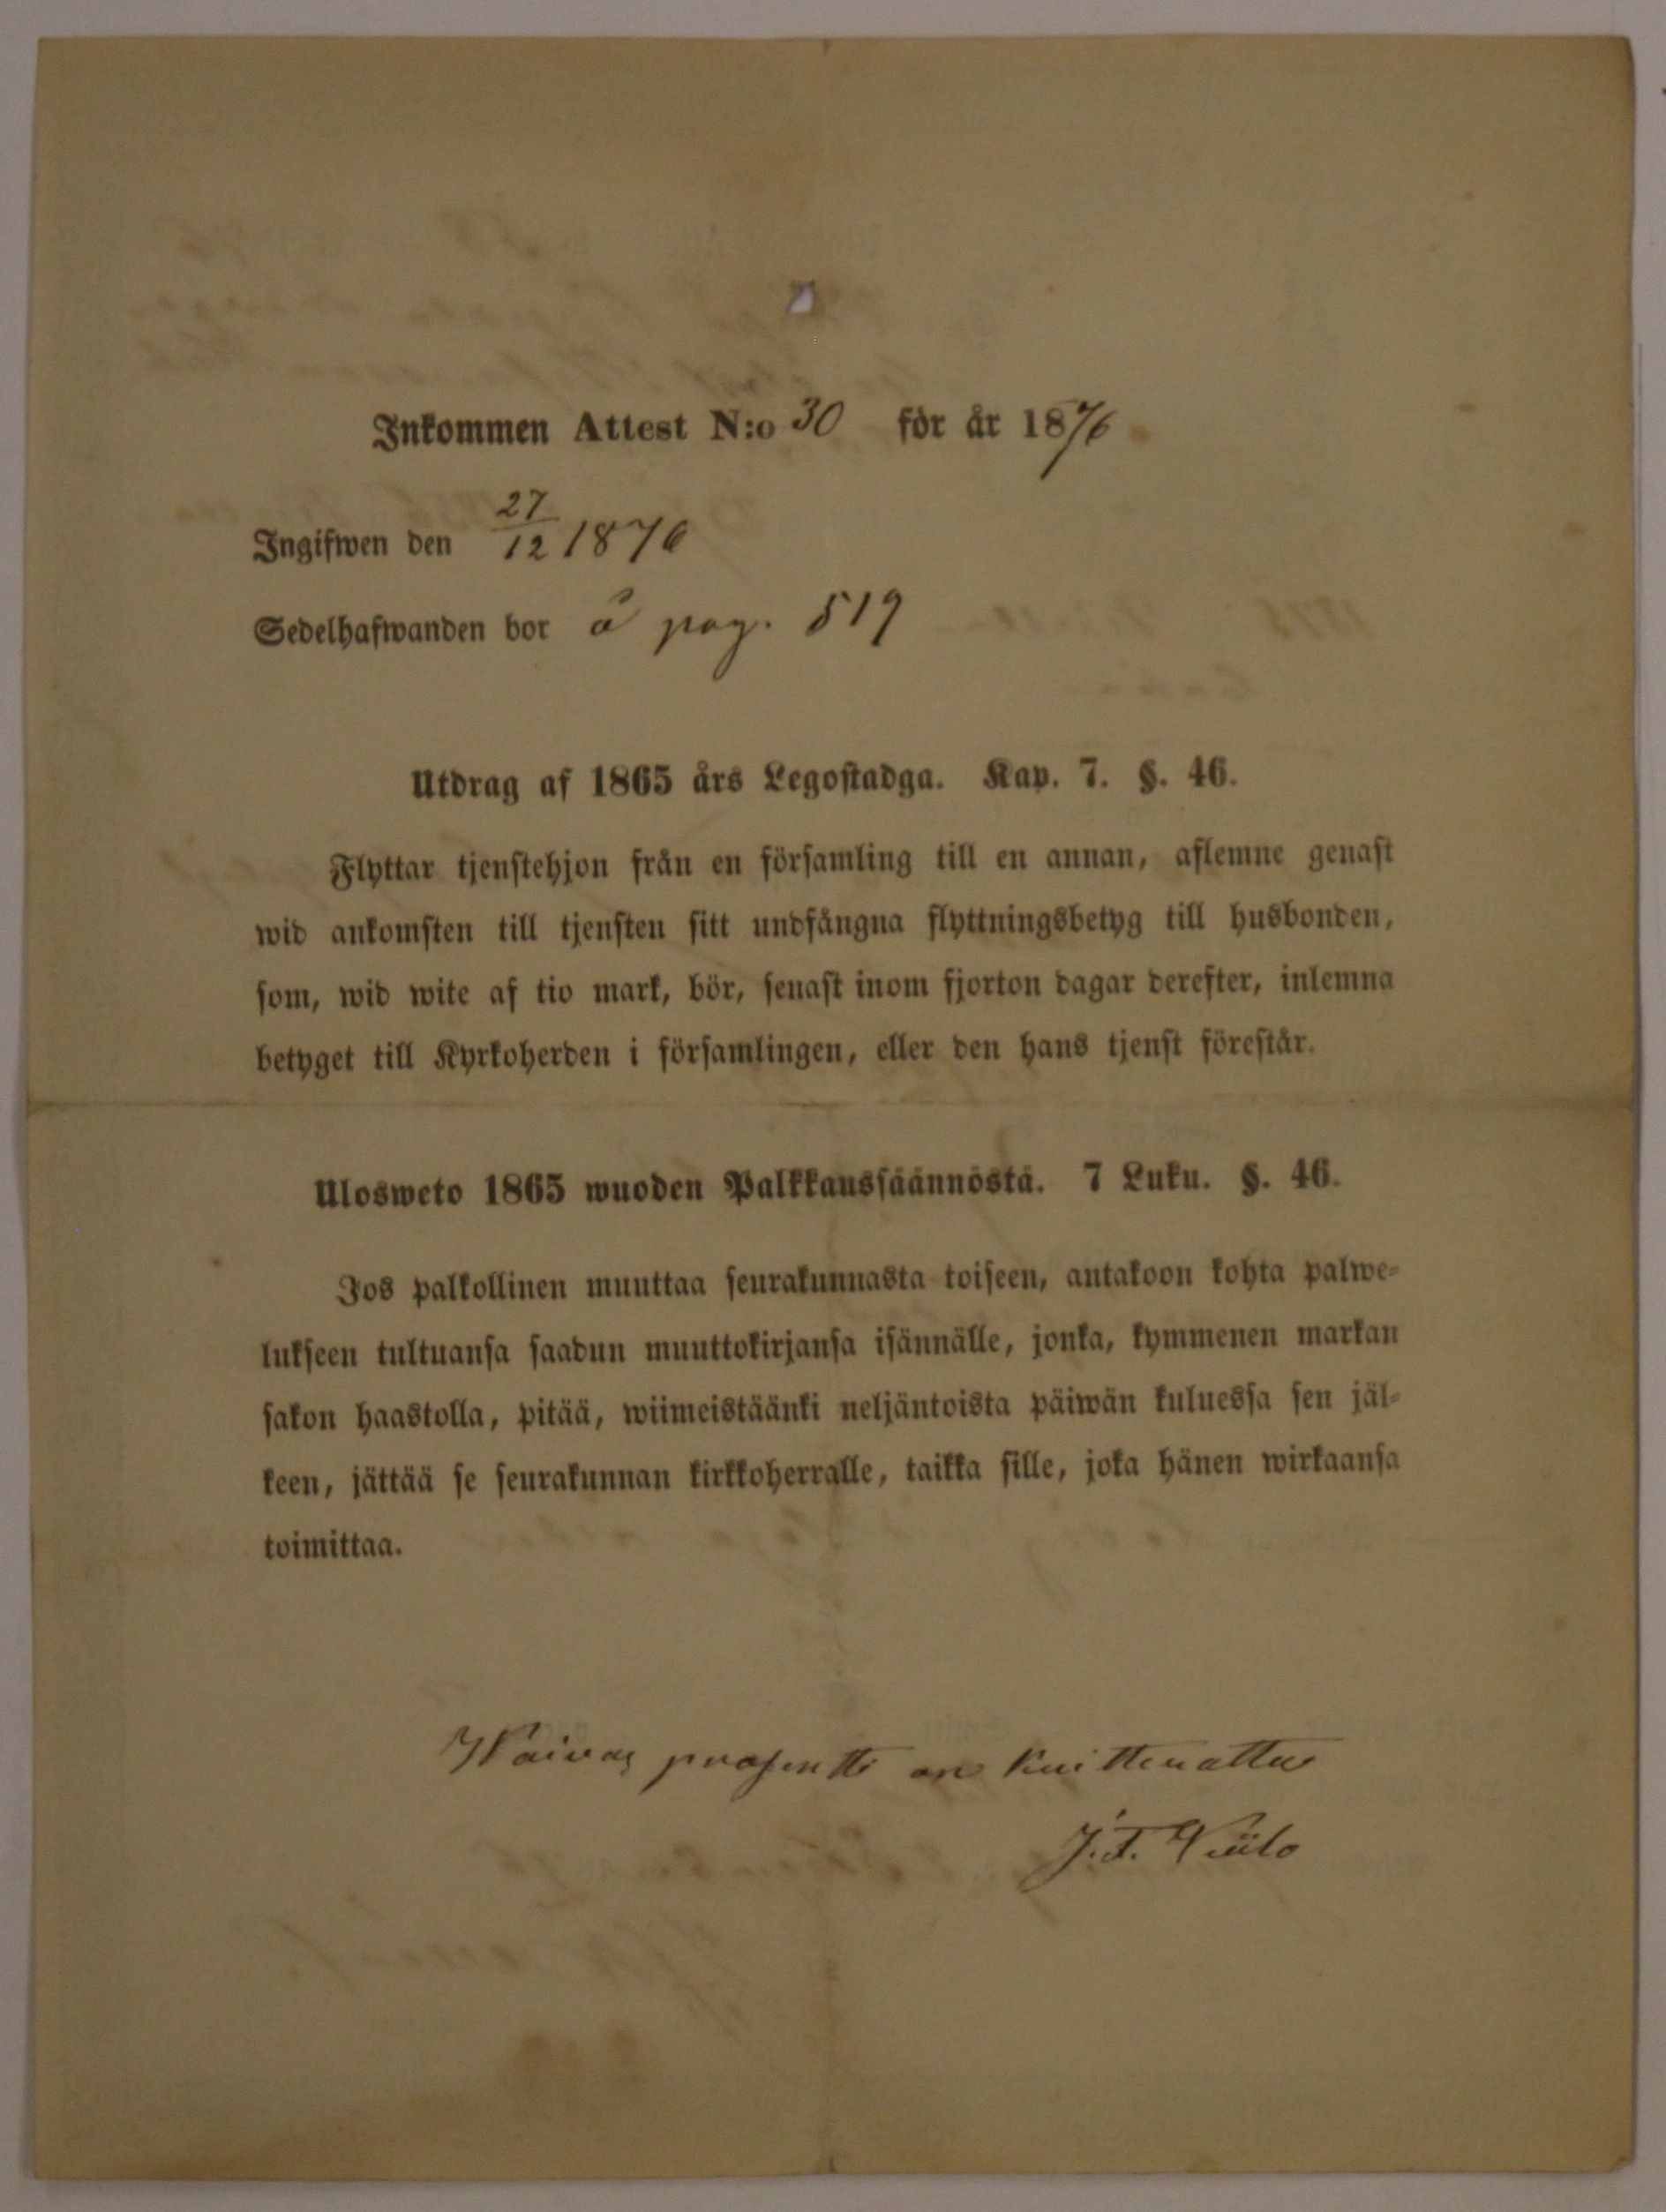 Inkommen Attest N:o 30 för år 1876
Ingifwen den 27/12 1876
Sedelhafwanden bor å pag. 519
Utdrag af 1865 års Legostadga. Kap. 7. §. 46.
Flyttar tjenstehjon från en församling till en annan, aflemne genast
wid ankomsten till tjensten sitt undfångna flyttningsbetyg till husbonden,
som, wid wite af tio mark, bör, senast inom fjorton dagar derefter, inlemna
betyget till Kyrkoherden i församlingen, eller den hans tjenst förestår.
Ulosweto 1865 wuoden Palkkaussäännöstä. 7 Luku. §. 46.
Jos palkollinen muuttaa seurakunnasta toiseen, antakoon kohta palwe-
lukseen tultuansa saadun muuttokirjansa isännälle, jonka, kymmenen markan
sakon haastolla, pitää, wiimeistäänki neljäntoista päiwän kuluessa sen jäl-
keen, jättää se seurakunnan kirkkoherralle, taikka sille, joka hänen wirkaansa
toimittaa.
Waivas prosentti on kuittenattu